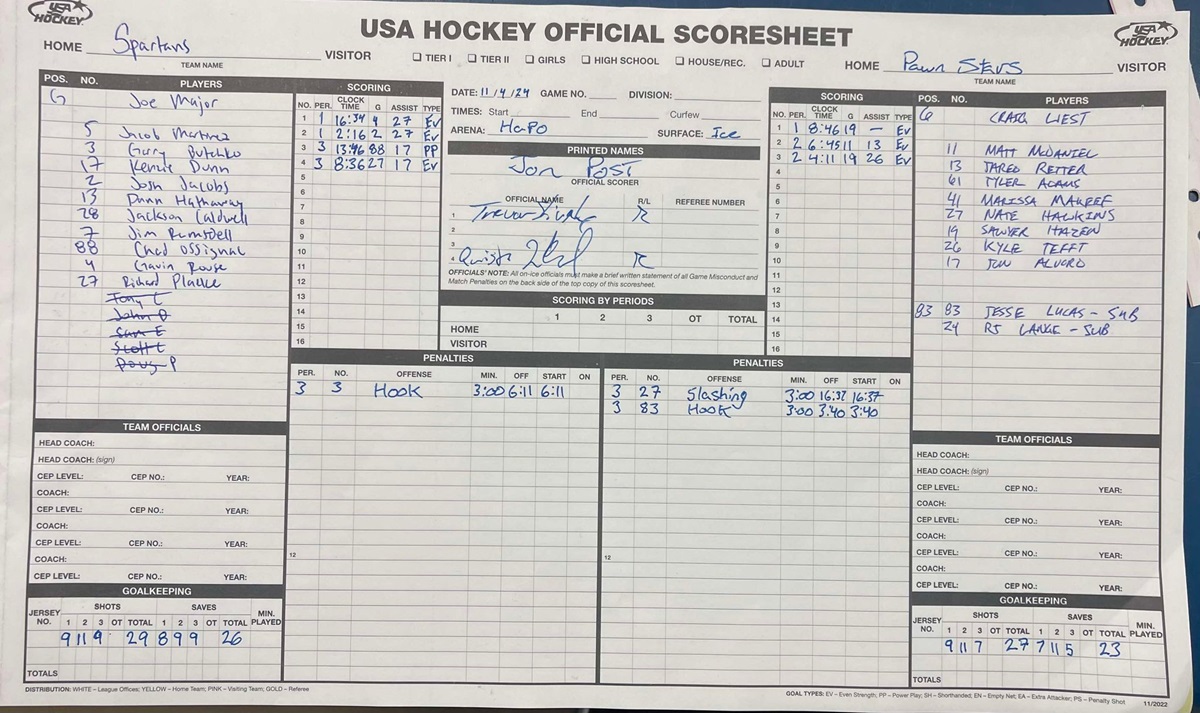 USA HOCKEY
USA HOCKEY OFFICIAL SCORESHEET
USA HOCKEY
HOME Spartans VISITOR
TEAM NAME
☐ TIER I ☐ TIER II ☐ GIRLS ☐ HIGH SCHOOL ☐ HOUSE/REC. ☐ ADULT
HOME Pawn Stars VISITOR
TEAM NAME
POS. NO. PLAYERS
G Joe Major
5 Jacob Martinez
3 Gary Butchko
17 Kennie Dunn
2 Josh Jacobs
13 Dann Hathaway
28 Jackson Caldwell
7 Jim Rumsdell
88 Chad Ossignal
4 Gavin Rouse
27 Richard Plauce
Tony L
John O
Sam E
Scott L
Doug P
SCORING
NO. PER. CLOCK TIME G ASSIST TYPE
1 1 16:34 4 27 EV
2 1 2:16 2 27 EV
3 3 13:46 88 17 PP
4 3 8:36 27 17 EV
5
6
7
8
9
10
11
12
13
14
15
16
DATE: 11/4/24 GAME NO. DIVISION:
TIMES: Start End Curfew
ARENA: HAPO SURFACE: Ice
PRINTED NAMES
Jon Post
OFFICIAL SCORER
OFFICIAL NAME R/L REFEREE NUMBER
1 Trevor R
2
3
4 R
OFFICIALS' NOTE: All on-ice officials must make a brief written statement of all Game Misconduct and
Match Penalties on the back side of the top copy of this scoresheet.
SCORING BY PERIODS
1 2 3 OT TOTAL
HOME
VISITOR
SCORING
NO. PER. CLOCK TIME G ASSIST TYPE
1 1 8:46 19 — EV
2 2 6:45 11 13 EV
3 2 4:11 19 26 EV
4
5
6
7
8
9
10
11
12
13
14
15
16
POS. NO. PLAYERS
G CRAIG LIEST
11 MATT McDANIEL
13 JARED RETTER
61 TYLER ADAMS
41 MARISSA
27 NATE HAWKINS
19 SAWYER HAZEN
26 KYLE TEFFT
17 JON ALVORD
83 83 JESSE LUCAS - SUB
24 RJ LANGE - SUB
PENALTIES
PER. NO. OFFENSE MIN. OFF START ON
3 3 Hook 3:00 6:11 6:11
12
PENALTIES
PER. NO. OFFENSE MIN. OFF START ON
3 27 Slashing 3:00 16:37 16:37
3 83 Hook 3:00 3:40 3:40
12
TEAM OFFICIALS
HEAD COACH:
HEAD COACH: (sign)
CEP LEVEL: CEP NO.: YEAR:
COACH:
CEP LEVEL: CEP NO.: YEAR:
COACH:
CEP LEVEL: CEP NO.: YEAR:
COACH:
CEP LEVEL: CEP NO.: YEAR:
GOALKEEPING
JERSEY NO. SHOTS SAVES MIN. PLAYED
1 2 3 OT TOTAL 1 2 3 OT TOTAL
9 11 9 29 8 9 9 26
TOTALS
TEAM OFFICIALS
HEAD COACH:
HEAD COACH: (sign)
CEP LEVEL: CEP NO.: YEAR:
COACH:
CEP LEVEL: CEP NO.: YEAR:
COACH:
CEP LEVEL: CEP NO.: YEAR:
COACH:
CEP LEVEL: CEP NO.: YEAR:
GOALKEEPING
JERSEY NO. SHOTS SAVES MIN. PLAYED
1 2 3 OT TOTAL 1 2 3 OT TOTAL
9 11 7 27 7 11 5 23
TOTALS
DISTRIBUTION: WHITE – League Offices; YELLOW – Home Team; PINK – Visiting Team; GOLD – Referee
GOAL TYPES: EV – Even Strength; PP – Power Play; SH – Shorthanded; EN – Empty Net; EA – Extra Attacker; PS – Penalty Shot 11/2022